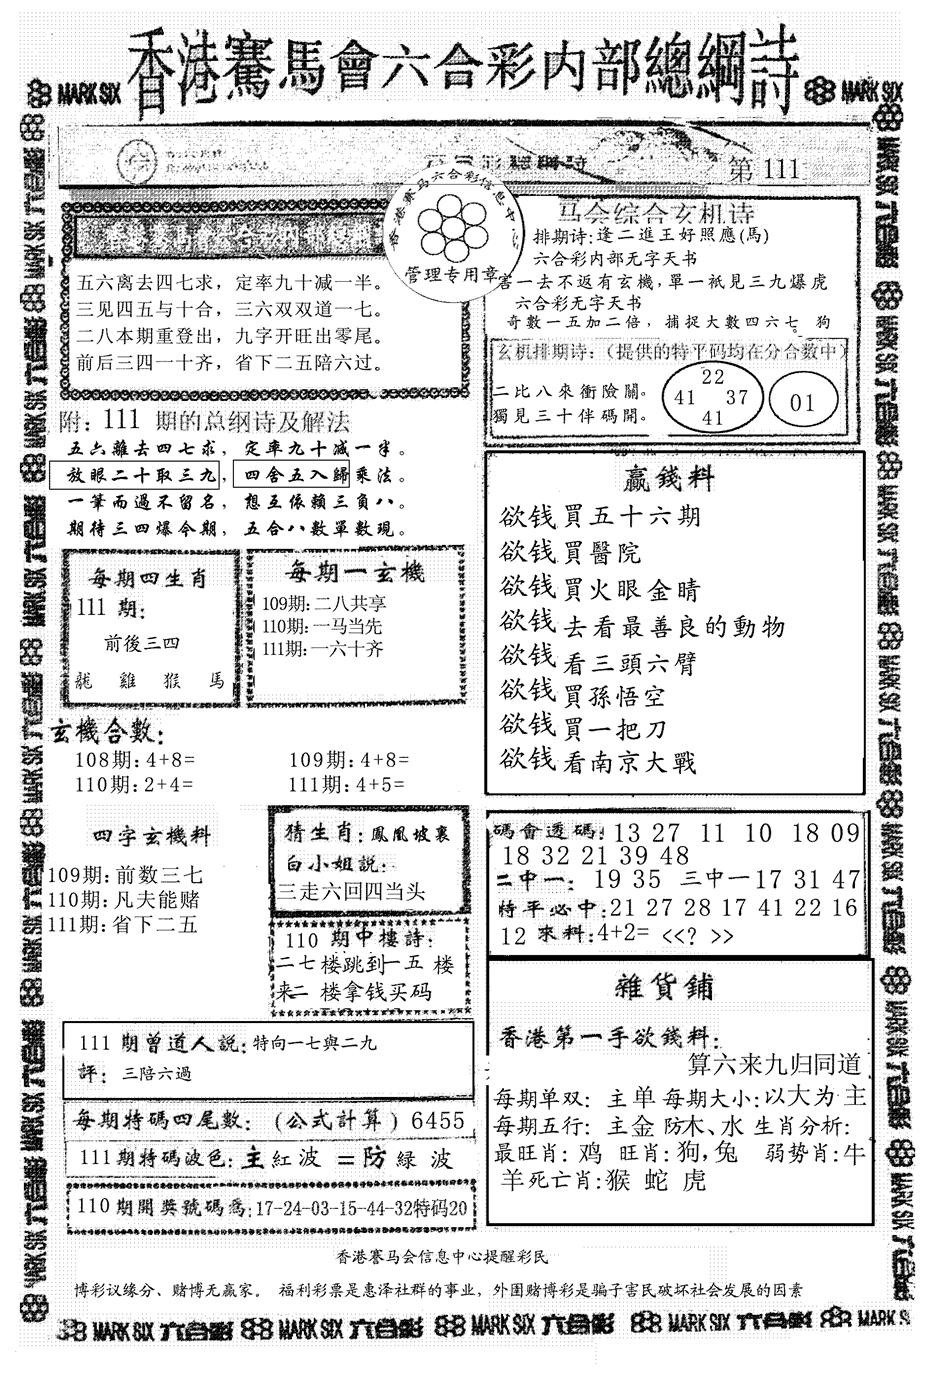 香港賽馬會六合彩内部總綱詩
MARK SIX
MARK SIX
第 111
香港赛马六合彩信息中心
管理专用章
五六离去四七求，定率九十减一半。
三见四五与十合，三六双双道一七。
二八本期重登出，九字开旺出零尾。
前后三四一十齐，省下二五陪六过。
马会综合玄机诗
排期诗:逢二進王好照應(馬)
六合彩内部无字天书
害一去不返有玄機,單一祇見三九爆虎
六合彩无字天书
奇數一五加二倍，捕捉大數四六七。狗
玄机排期诗:（提供的特平码均在分合数中）
二比八來衝險關。
獨見三十伴碼開。
22
41 37
41
01
附：111 期的总纲诗及解法
五六離去四七求，定率九十减一半。
放眼二十取三九，四舍五入歸乘法。
一筆而過不留名，想五依賴三負八。
期待三四爆今期，五合八數單數現。
每期四生肖
111 期:
前後三四
龍 雞 猴 馬
每期一玄機
109期:二八共享
110期:一马当先
111期:一六十齐
玄機合數:
108期:4+8=
109期:4+8=
110期:2+4=
111期:4+5=
四字玄機料
109期:前数三七
110期:凡夫能赌
111期:省下二五
猜生肖:鳳凰坡裏
白小姐説:
三走六回四当头
110 期中樓詩:
二七楼跳到一五 楼
来二 楼拿钱买码
赢錢料
欲钱買五十六期
欲钱買醫院
欲钱買火眼金睛
欲钱去看最善良的動物
欲钱看三頭六臂
欲钱買孫悟空
欲钱買一把刀
欲钱看南京大戰
碼會透碼:13 27 11 10 18 09
18 32 21 39 48
二中一: 19 35 三中一17 31 47
特平必中:21 27 28 17 41 22 16
12 來料:4+2= <<? >>
雜貨鋪
香港第一手欲錢料:
算六来九归同道
每期单双: 主单 每期大小:以大为主
每期五行: 主金 防木、水 生肖分析:
最旺肖: 鸡 旺肖:狗,兔 弱势肖:牛
羊死亡肖:猴 蛇 虎
111 期曾道人説:特向一七與二九
評: 三陪六過
每期特碼四尾數:(公式計算) 6455
111期特碼波色:主紅波=防緑波
110期開奬號碼爲:17-24-03-15-44-32特码20
香港賽马会信息中心提醒彩民
博彩议缘分、赌博无赢家。 福利彩票是惠泽社群的事业，外围赌博彩是骗子害民破坏社会发展的因素
MARK SIX 六合彩 MARK SIX 六合彩 MARK SIX 六合彩 MARK SIX 六合彩 MARK SIX